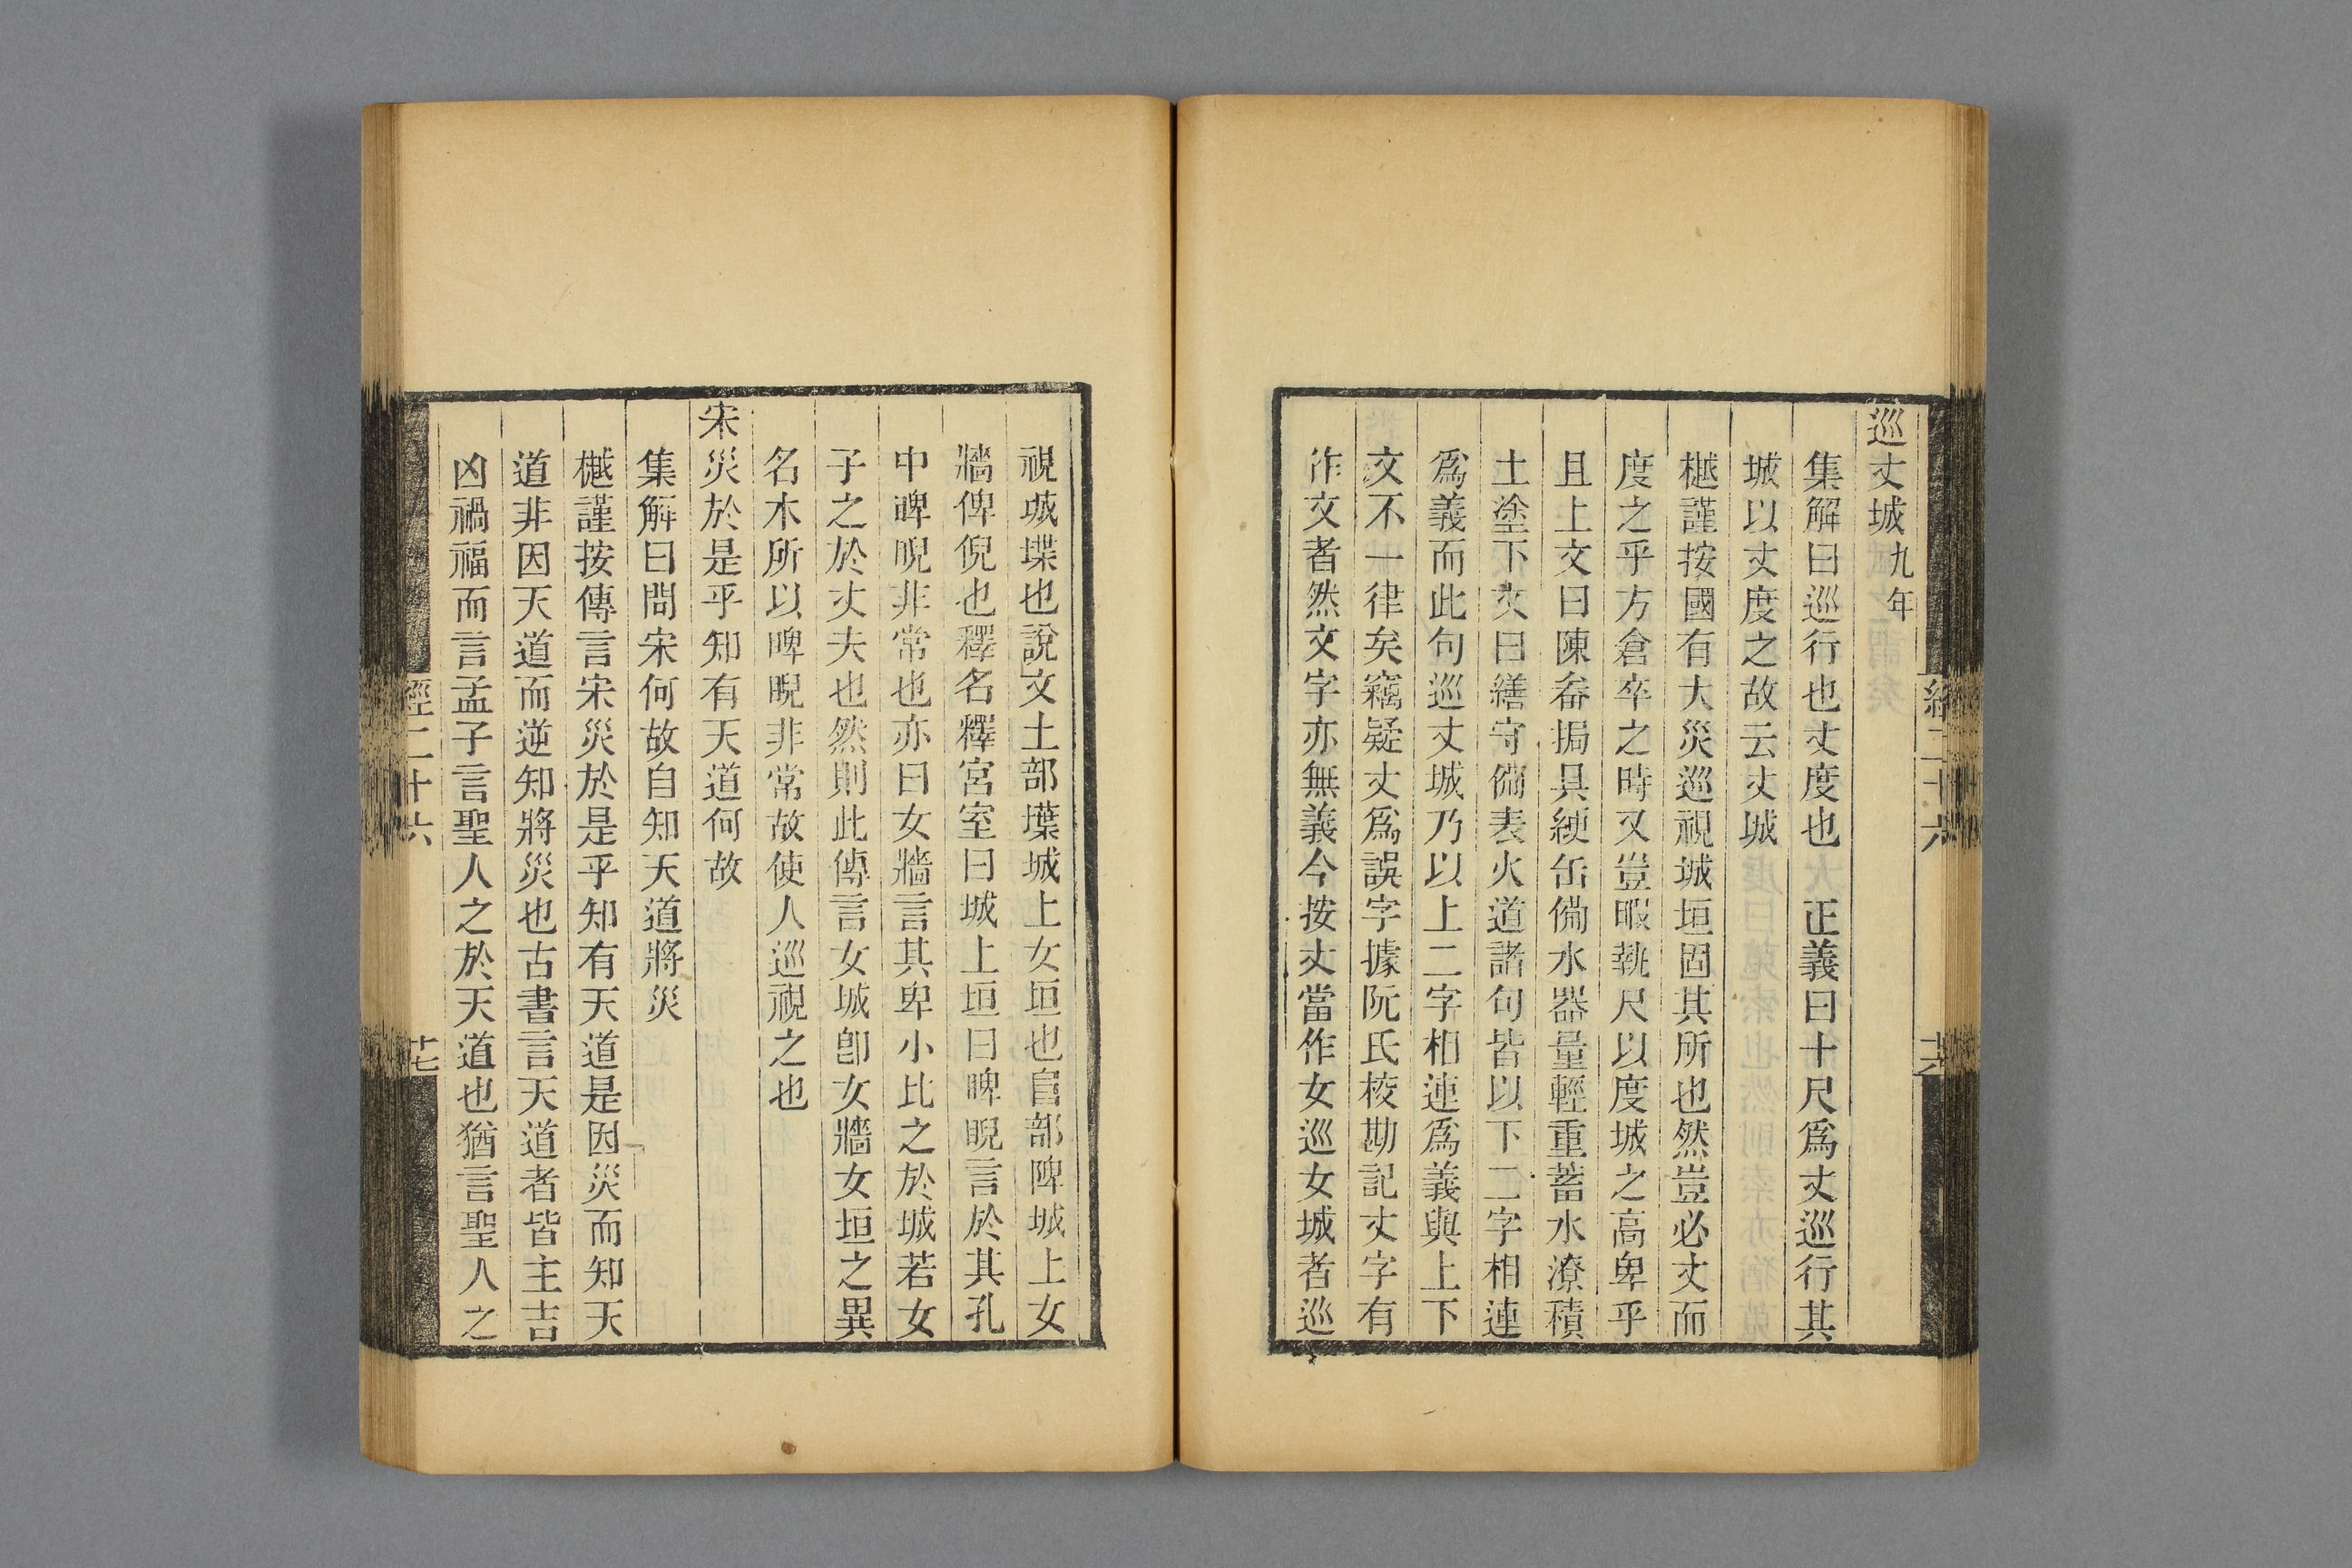 巡丈城九年
集解曰巡行也丈度也　正義曰十尺爲丈巡行其
城以丈度之故云丈城
樾謹按國有大災巡視城垣固其所也然豈必丈而
度之乎方倉卒之時又豈暇執尺以度城之高卑乎
且上文曰陳畚挶具綆缶備水器量輕重蓄水潦積
土塗下文曰繕守備表火道諸句皆以下二字相連
爲義而此句巡丈城乃以上二字相連爲義與上下
文不一律矣竊疑丈爲誤字據阮氏校勘記丈字有
作文者然文字亦無義今按丈當作女巡女城者巡
經二十六
十六
視城堞也說文土部堞城上女垣也𨸏部陴城上女
牆俾倪也釋名釋宮室曰城上垣曰睥睨言於其孔
中睥睨非常也亦曰女牆言其卑小比之於城若女
子之於丈夫也然則此傳言女城卽女牆女垣之異
名木所以睥睨非常故使人巡視之也
宋災於是乎知有天道何故
集解曰問宋何故自知天道將災
樾謹按傳言宋災於是乎知有天道是因災而知天
道非因天道而逆知將災也古書言天道者皆主吉
凶禍福而言孟子言聖人之於天道也猶言聖人之
經二十六
十七